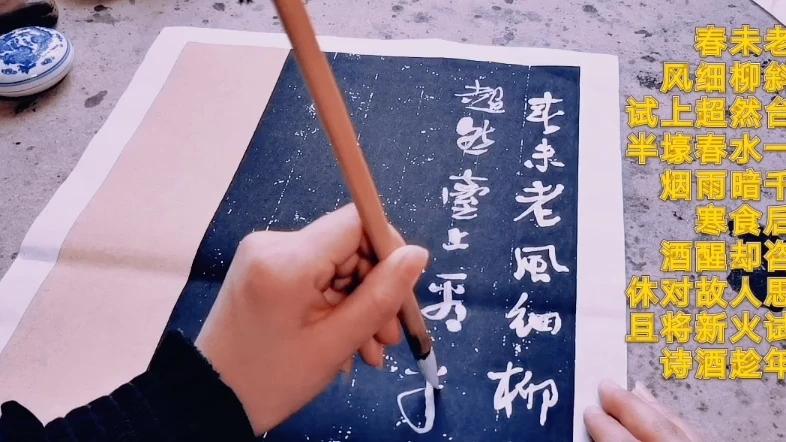 春未老風細柳
超然臺上看
春未老
风细柳斜
试上超然台
半壕春水一
烟雨暗千
寒食后
酒醒却咨
休对故人思
且将新火试
诗酒趁年